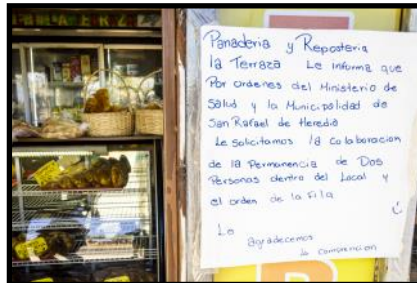 Panaderia y Reposteria
la Terraza Le informa que
Por ordenes del Ministerio de
Salud y la Municipalidad de
San Rafael de Heredia
Le solicitamos la Colaboracion
de la Permanencia de Dos
Personas dentro del Local y
el orden de la Fila
Lo
agradecemos
la comprencion